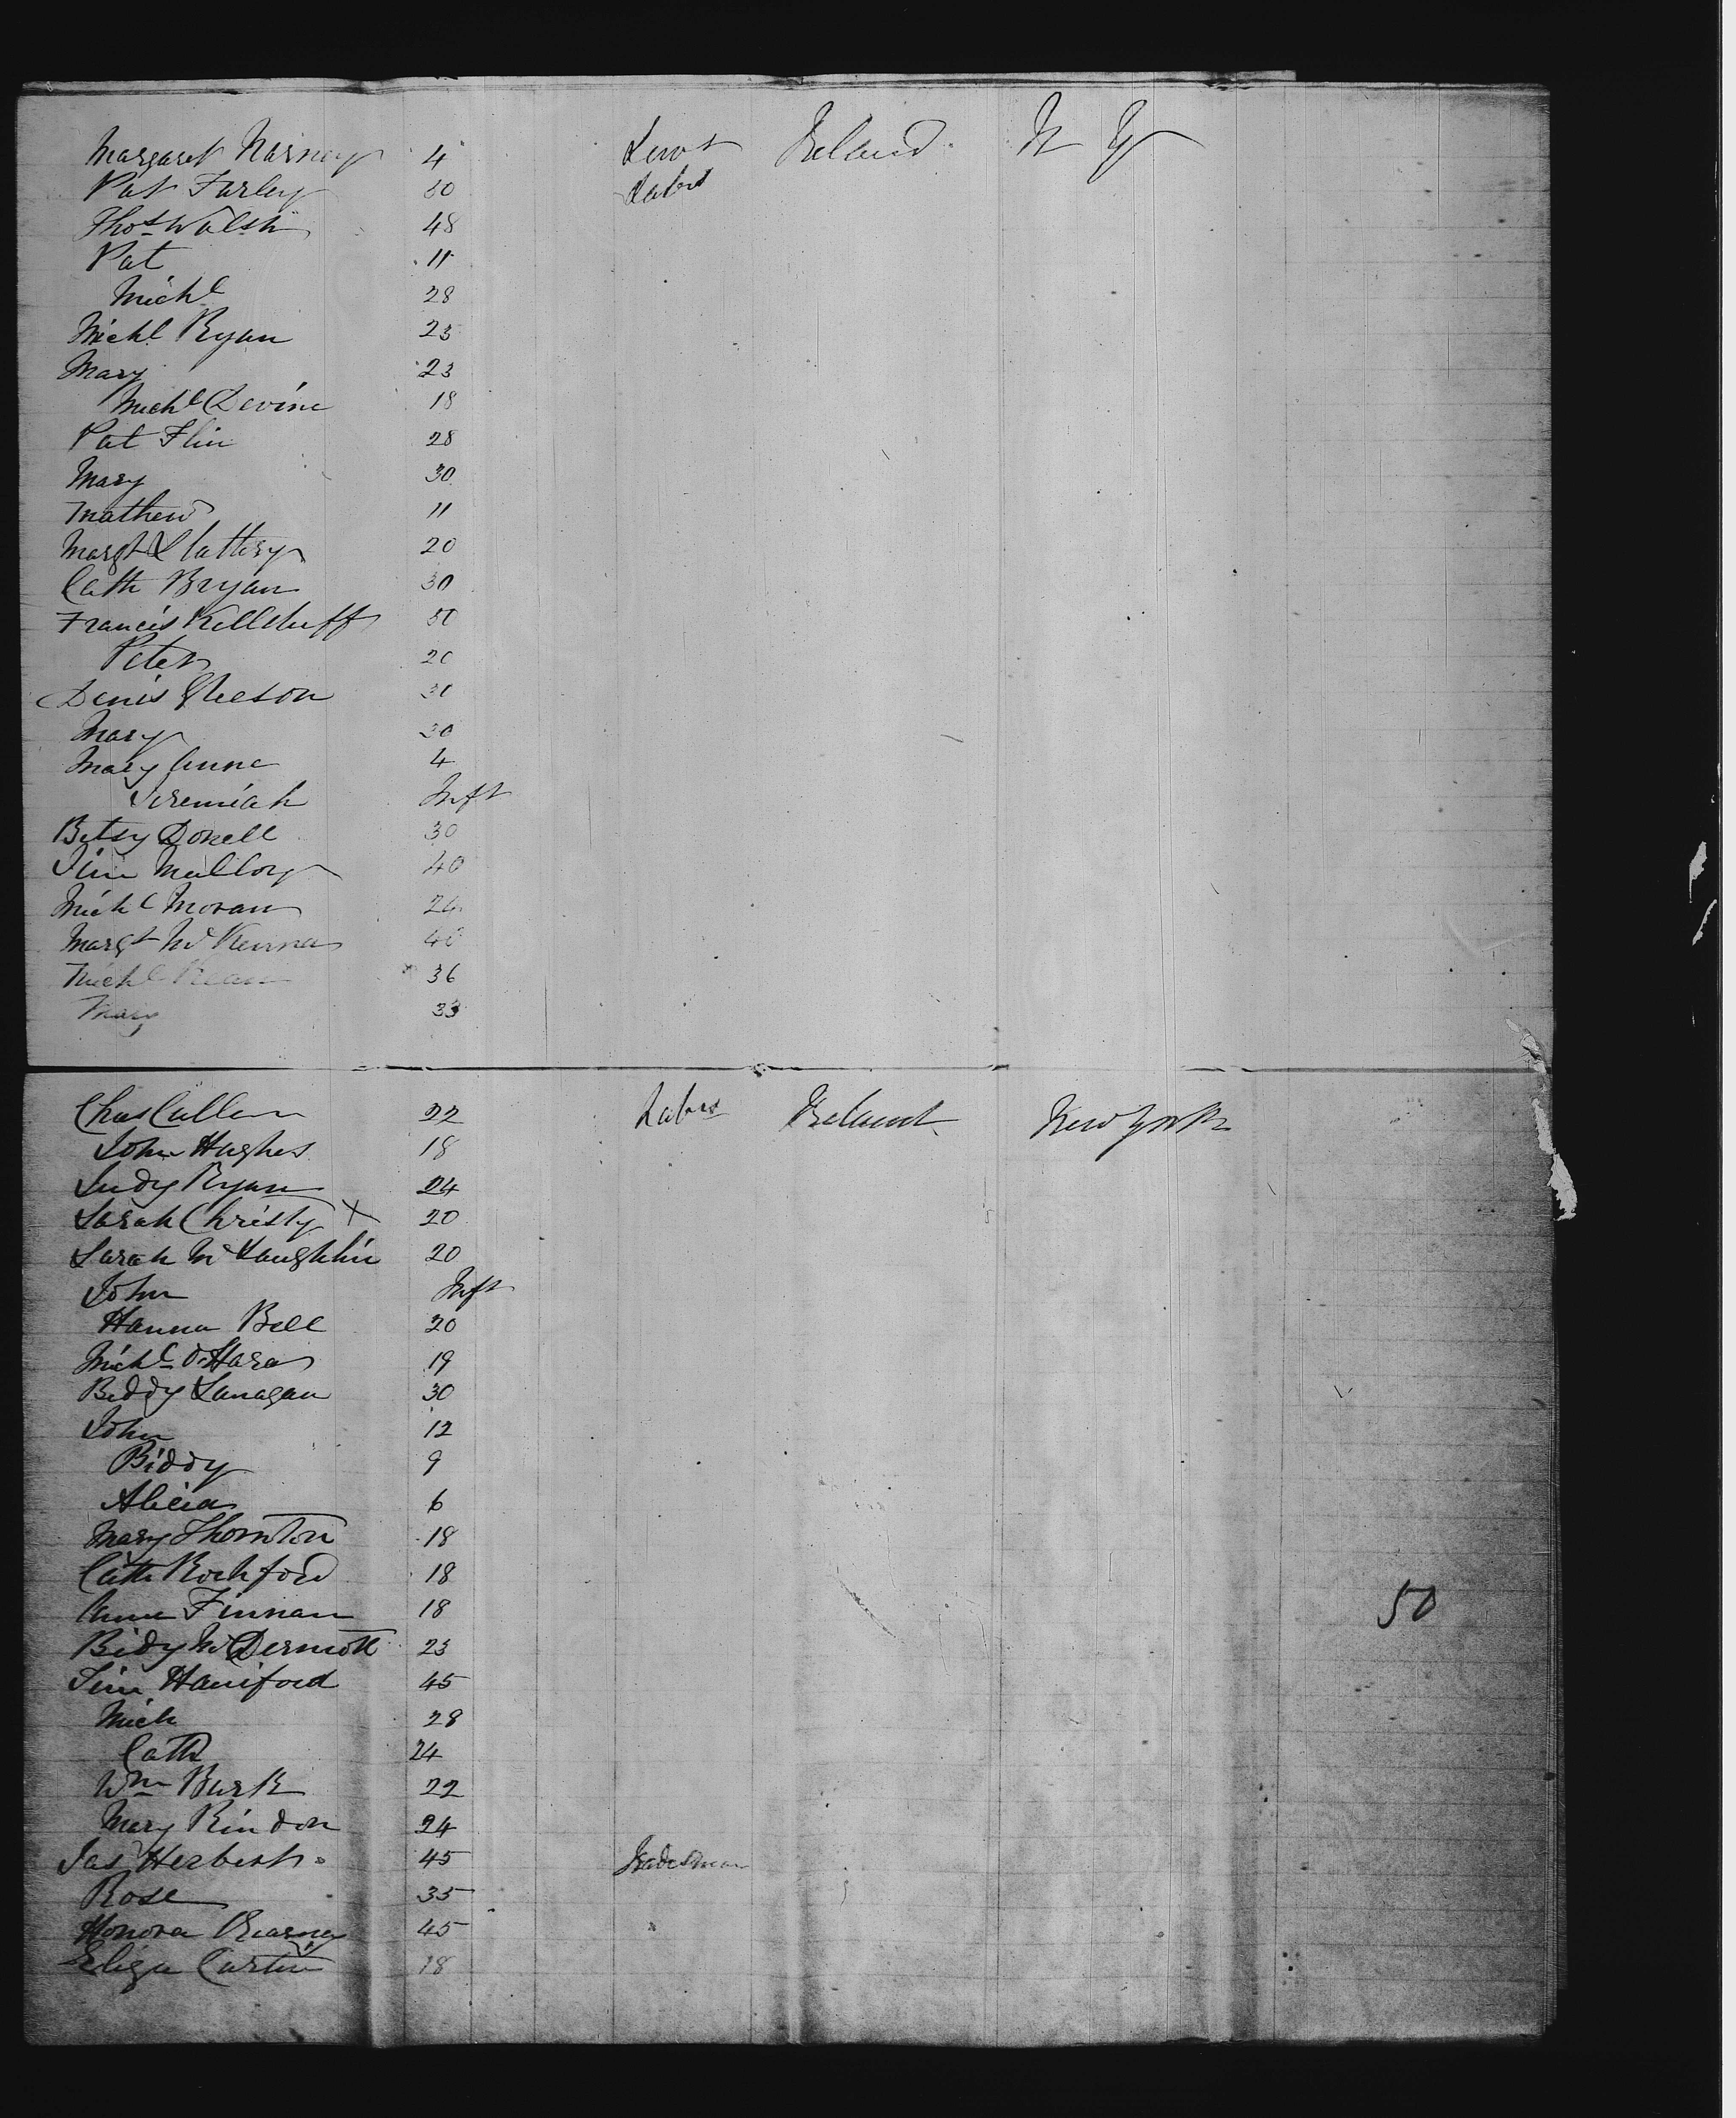 Margaret Narney 4 Servt Ireland N Y
Pat Farley 50 Labr
Thos Walsh 48
Pat 11
Michl 28
Michl Ryan 25
Mary 23
Michl Devine 18
Pat Flin 28
Mary 30
Mathew 11
Margt Slattery 20
Cath Bryan 30
Francis Killduff 50
Peter 20
Denis Gleeson 30
Mary 30
Mary Anne 4
Jeremiah Inft
Betsy Donell 30
Jim Malloy 40
Michl Moran 24
Margt McKenna 40
Michl Kean 36
Mary 33
Chas Cullen 22 Labr Ireland New York
John Hughes 18
Judy Ryan 24
Sarah Christy X 20
Sarah McLaughlin 20
John Inft
Hanna Bell 20
Michl O'Hara 19
Biddy Lanagan 30
John 12
Biddy 9
Alicia 6
Mary Thornton 18
Cath Rochford 18
Anne Finnan 18 50
Bidy McDermott 23
Jim Haniford 45
Mich 28
Cath 24
Wm Burk 22
Mary Rindon 24
Jas Herbert 45 Tradesman
Rose 35
Honora Kearney 45
Eliza Curtin 18